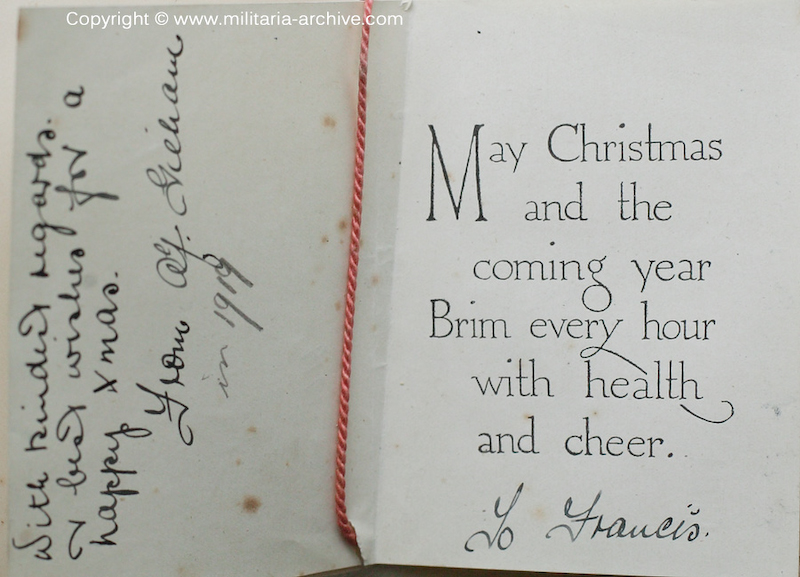 Copyright © www.militaria-archive.com
With kindest regards.
& best wishes for a
happy Xmas.
From
in 1919
May Christmas
and the
coming year
Brim every hour
with health
and cheer.
To Francis.